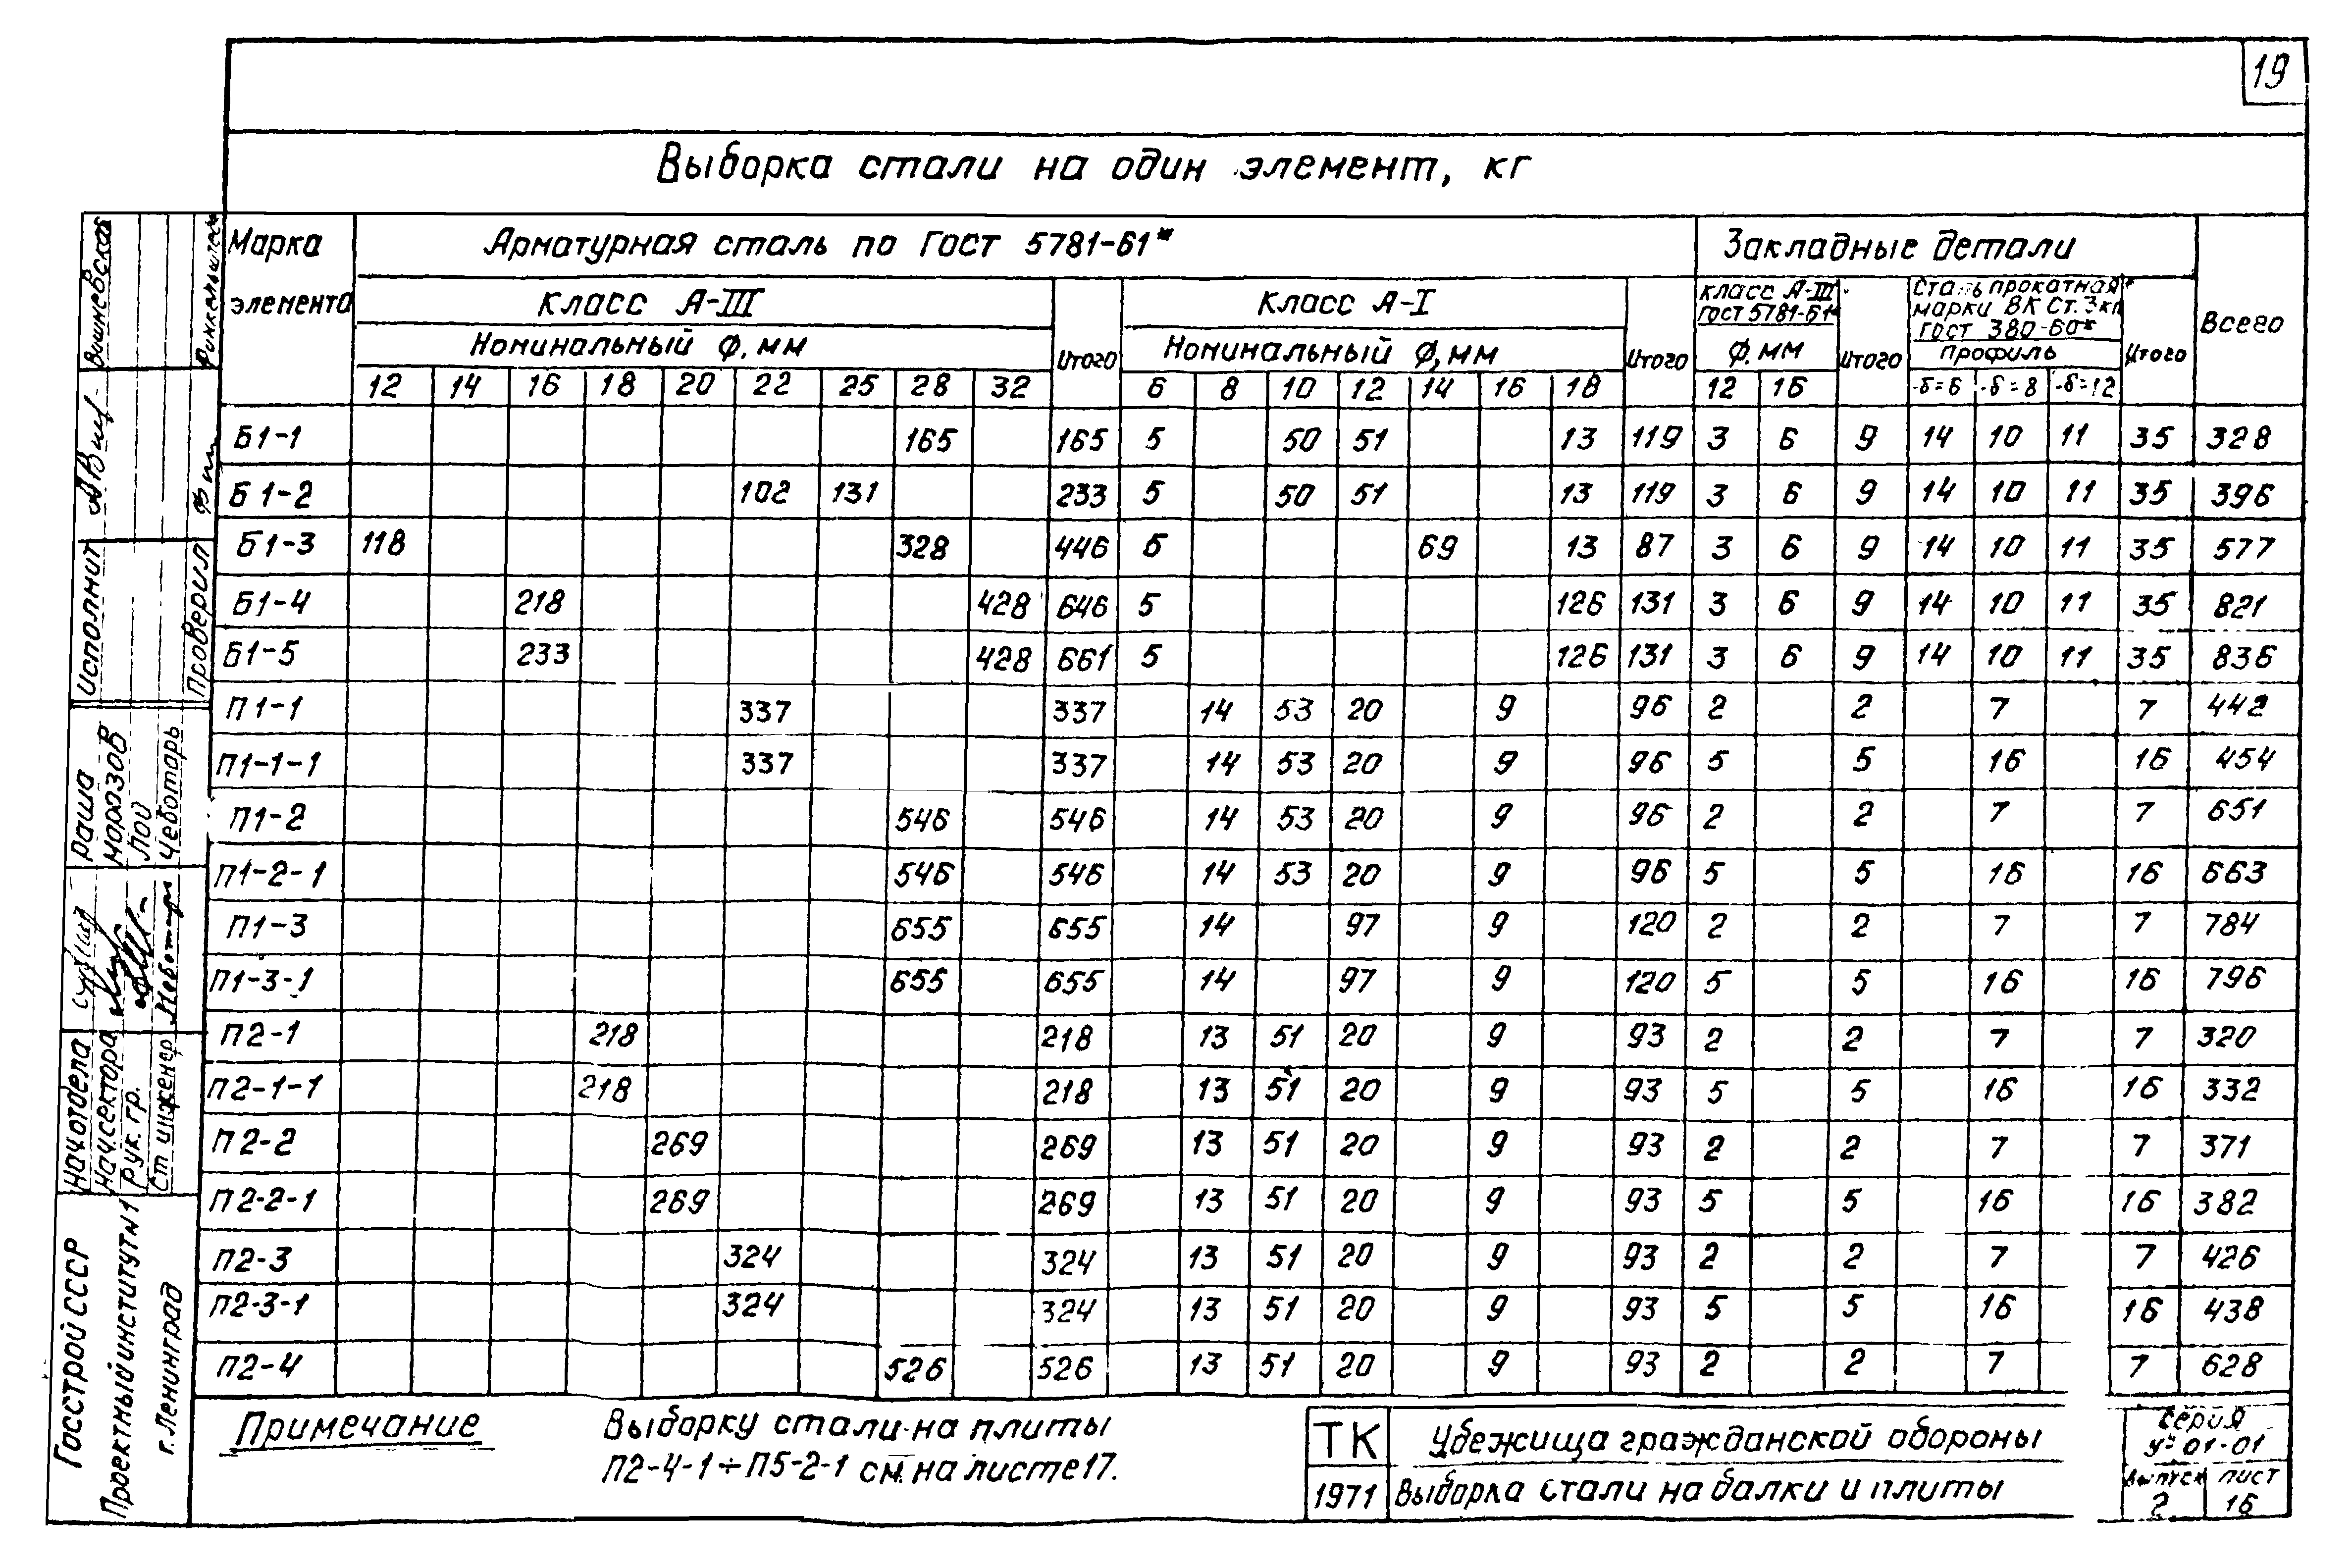 19
Выборка стали на один элемент, кг
Марка элемента
Арматурная сталь по Гост 5781-61*
Закладные детали
Всего
Класс А-III
Итого
Класс А-I
Итого
класс А-III гост 5781-61*
Итого
Сталь прокатная марки ВК Ст. 3кп гост 380-60*
Итого
Номинальный ф, мм
Номинальный ф, мм
ф. мм
профиль
12 14 16 18 20 22 25 28 32 6 8 10 12 14 16 18 12 16 -δ=6 -δ=8 -δ=12
Б1-1 165 165 5 50 51 13 119 3 6 9 14 10 11 35 328
Б1-2 102 131 233 5 50 51 13 119 3 6 9 14 10 11 35 396
Б1-3 118 328 446 5 69 13 87 3 6 9 14 10 11 35 577
Б1-4 218 428 646 5 126 131 3 6 9 14 10 11 35 821
Б1-5 233 428 661 5 126 131 3 6 9 14 10 11 35 836
П1-1 337 337 14 53 20 9 96 2 2 7 7 442
П1-1-1 337 337 14 53 20 9 96 5 5 16 16 454
П1-2 546 546 14 53 20 9 96 2 2 7 7 651
П1-2-1 546 546 14 53 20 9 96 5 5 16 16 663
П1-3 655 655 14 97 9 120 2 2 7 7 784
П1-3-1 655 655 14 97 9 120 5 5 16 16 796
П2-1 218 218 13 51 20 9 93 2 2 7 7 320
П2-1-1 218 218 13 51 20 9 93 5 5 16 16 332
П2-2 269 269 13 51 20 9 93 2 2 7 7 371
П2-2-1 269 269 13 51 20 9 93 5 5 16 16 382
П2-3 324 324 13 51 20 9 93 2 2 7 7 426
П2-3-1 324 324 13 51 20 9 93 5 5 16 16 438
П2-4 526 526 13 51 20 9 93 2 2 7 7 628
Примечание
Выборку стали на плиты
П2-4-1÷П5-2-1 см. на листе 17.
ТК
Убежища гражданской обороны
Серия
У-01-01
1971
Выборка стали на балки и плиты
Выпуск
2
лист
16
Госстрой СССР
Проектный институт №1
г. Ленинград
Нач отдела
Нач. сектора
Рук. гр.
Ст инженер
Раша
Морозов
Лой
Чеботарь
Исполнит
Проверил
Вишневская